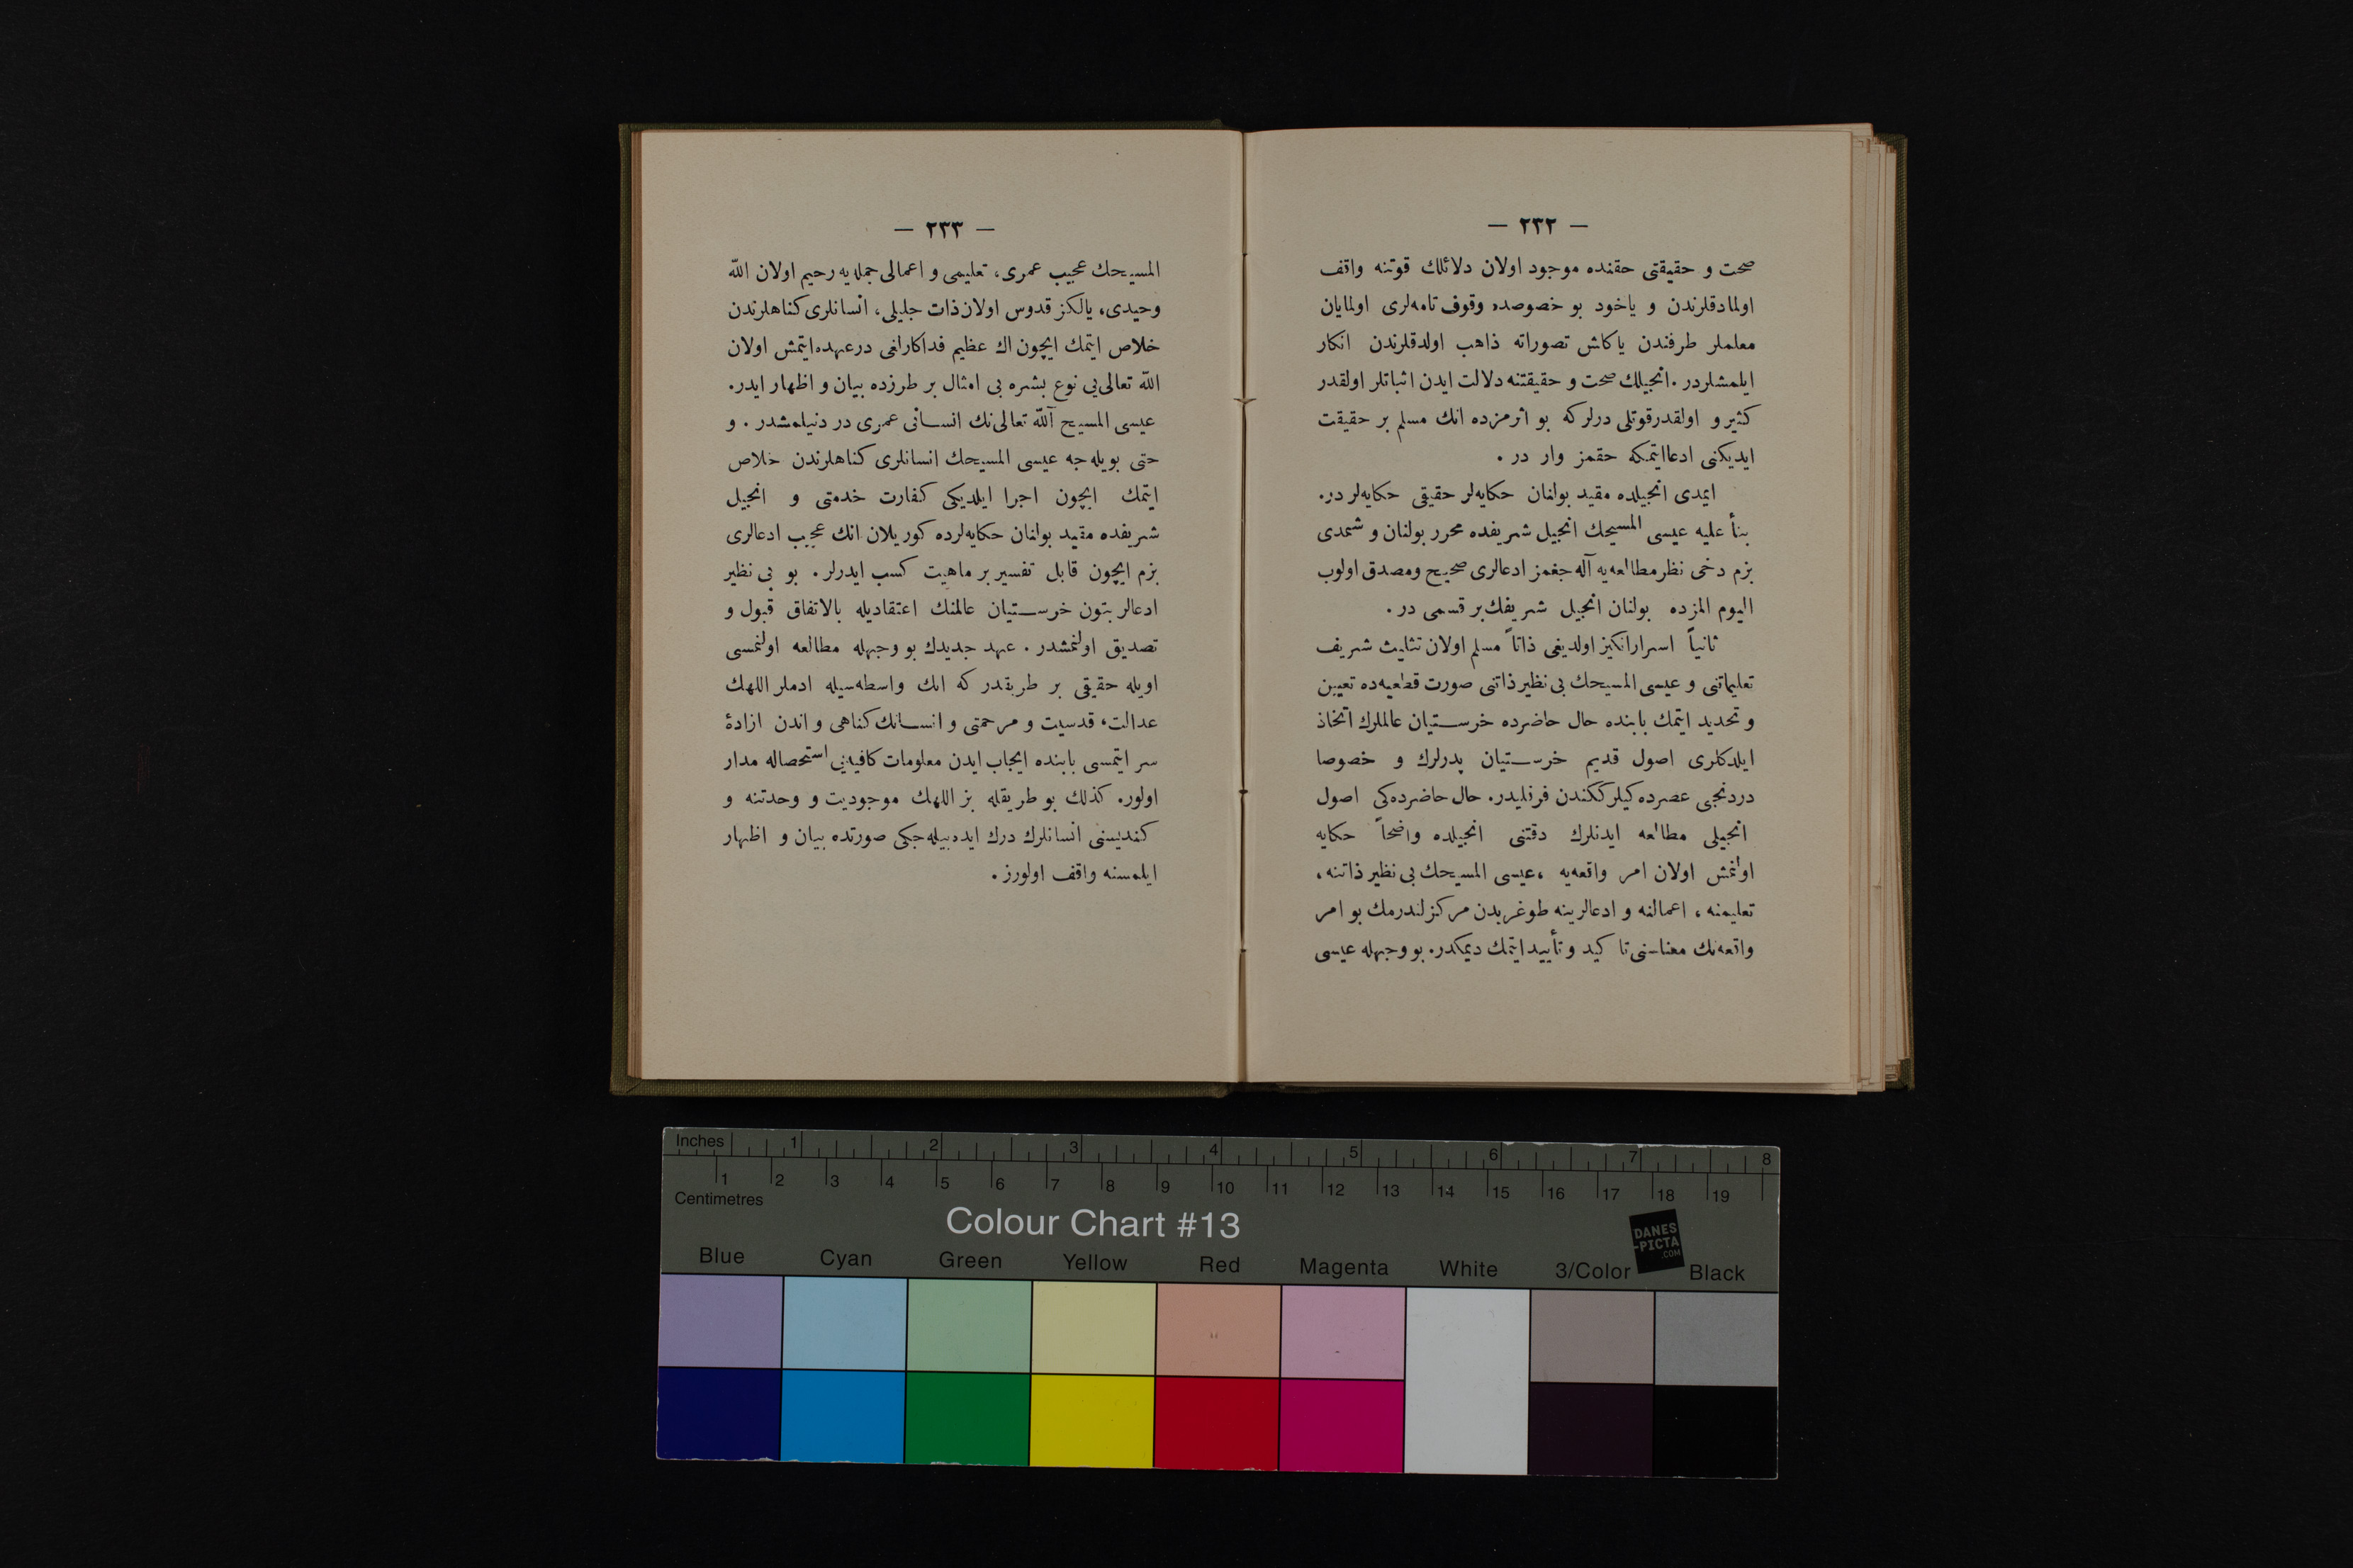 — ٢٣٢ —
صحت و حقيقتى حقنده موجود اولان دلائلك قوتنه واقف
اولمادقلرندن و ياخود بو خصوصده وقوف تامه‌لرى اولمايان
معلملر طرفندن ياكاش تصوراته ذاهب اولدقلرندن انكار
ايلمشلردر . انجيلك صحت و حقيقتنه دلالت ايدن اثباتلر اولقدر
كثير و اولقدر قوتلى درلر كه بو اثرمزده انك مسلم بر حقيقت
ايديكنى ادعا ايتمكه حقمز وار در .
ايمدى انجيلده مقيد بولنان حكايه‌لر حقيقى حكايه‌لر در.
بنأ عليه عيسى المسيحك انجيل شريفده محرر بولنان و شمدى
بزم دخى نظر مطالعه‌يه آله جغمز ادعالرى صحيح ومصدق اولوب
اليوم المزده بولنان انجيل شريفك بر قسمى در .
ثانياً اسرارانكيز اولديغى ذاتاً مسلم اولان تثليث شريف
تعليماتنى و عيسى المسيحك بى نظير ذاتنى صورت قطعيه‌ده تعيين
و تحديد ايتمك بابنده حال حاضرده خرستيان عالملرك اتخاذ
ايلدكلرى اصول قديم خرستيان پدرلرك و خصوصا
دردنجى عصرده‌كيلرككندن فرقليدر. حال حاضرده‌كى اصول
انجيلى مطالعه ايدنلرك دقتنى انجيلده واضحاً حكايه
اولنمش اولان امر واقعه‌يه ، عيسى المسيحك بى نظير ذاتنه ،
تعليمنه ، اعمالنه و ادعالرينه طوغريدن مركزلندرمك بو امر
واقعه‌نك معناسنى تا كيد و تأييد ايتمك ديمكدر. بو وجهله عيسى
— ٢٣٣ —
المسيحك عجيب عمرى، تعليمى و اعمالى جمله‌يه رحيم اولان الله
وحيدى، يالكز قدوس اولان ذات جليلى، انسانلرى كناهلرندن
خلاص ايتمك ايچون اك عظيم فداكارلغى درعهده ايتمش اولان
الله تعالى‌يى نوع بشره بى امثال بر طرزده بيان و اظهار ايدر.
عيسى المسيح آلله تعالى‌نك انسانى عمرى در دنيلمشدر . و
حتى بويله جه عيسى المسيحك انسانلرى كناهلرندن خلاص
ايتمك ايچون اجرا ايلديكى كفارت خدمتى و انجيل
شريفده مقيد بولنان حكايه‌لرده كوريلان انك عجيب ادعالرى
بزم ايچون قابل تفسير بر ماهيت كسب ايدرلر . بو بى نظير
ادعالر بتون خرستيان عالمنك اعتقاديله بالاتفاق قبول و
تصديق اولنمشدر . عهد جديدك بو وجهله مطالعه اولنمسى
اويله حقيقى بر طريقدر كه انك واسطه‌سيله ادملر اللهك
عدالت، قدسيت و مرحمتى و انسانك كناهى و اندن ازادۀ
سر ايتمسى بابنده ايجاب ايدن معلومات كافيه‌يى استحصاله مدار
اولور. كذلك بو طريقله بز اللهك موجوديت و وحدتنه و
كنديسنى انسانلرك درك ايده بيله جكى صورتده بيان و اظهار
ايلمسنه واقف اولورز .
Inches 1 2 3 4 5 6 7 8
1 2 3 4 5 6 7 8 9 10 11 12 13 14 15 16 17 18 19
Centimetres
Colour Chart #13
DANES
-PICTA
.COM
Blue Cyan Green Yellow Red Magenta White 3/Color Black